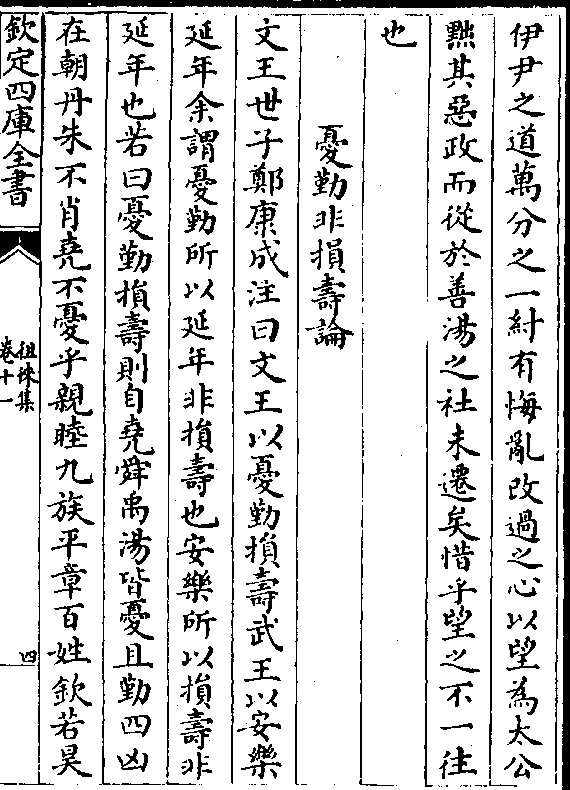 伊尹之道萬分之一紂有悔亂改過之心以望為太公
黜其惡政而從於善湯之社未遷矣惜乎望之不一往
也
憂勤非損壽論
文王世子鄭康成注曰文王以憂勤損壽武王以安樂
延年余謂憂勤所以延年非損壽也安樂所以損壽非
延年也若曰憂勤損壽則自堯舜禹湯皆憂且勤四凶
在朝丹朱不肖堯不憂乎親睦九族平章百姓欽若昊
欽定四庫全書
徂徠集
卷十一
四